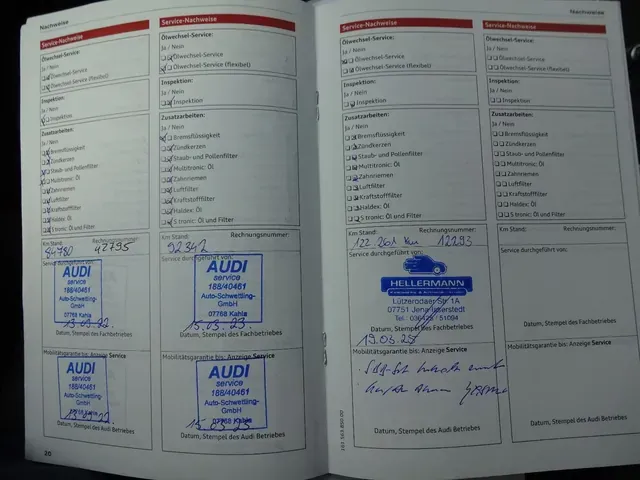 Nachweise
Service-Nachweise
Ölwechsel-Service:
Ja / Nein
Ölwechsel-Service
Ölwechsel-Service (flexibel)
Inspektion:
Ja / Nein
Inspektion
Zusatzarbeiten:
Ja / Nein
Bremsflüssigkeit
Zündkerzen
Staub- und Pollenfilter
Multitronic: Öl
Zahnriemen
Luftfilter
Kraftstofffilter
Haldex: Öl
S tronic: Öl und Filter
Km Stand: Rechnungsnummer:
84780 42795
Service durchgeführt von:
AUDI
service
188/40461
Auto-Schwettling-
GmbH
07768 Kahla
Datum, Stempel des Fachbetriebes
Mobilitätsgarantie bis: Anzeige Service
AUDI
service
188/40461
Auto-Schwettling-
GmbH
07768 Kahla
Datum, Stempel des Audi Betriebes
20
Service-Nachweise
Ölwechsel-Service:
Ja / Nein
Ölwechsel-Service
Ölwechsel-Service (flexibel)
Inspektion:
Ja / Nein
Inspektion
Zusatzarbeiten:
Ja / Nein
Bremsflüssigkeit
Zündkerzen
Staub- und Pollenfilter
Multitronic: Öl
Zahnriemen
Luftfilter
Kraftstofffilter
Haldex: Öl
S tronic: Öl und Filter
Km Stand: Rechnungsnummer:
92342
Service durchgeführt von:
AUDI
service
188/40461
Auto-Schwettling-
GmbH
07768 Kahla
15.03.23.
Datum, Stempel des Fachbetriebes
Mobilitätsgarantie bis: Anzeige Service
AUDI
service
188/40461
Auto-Schwettling-
GmbH
07768 Kahla
Datum, Stempel des Audi Betriebes
Service-Nachweise
Ölwechsel-Service:
Ja / Nein
Ölwechsel-Service
Ölwechsel-Service (flexibel)
Inspektion:
Ja / Nein
Inspektion
Zusatzarbeiten:
Ja / Nein
Bremsflüssigkeit
Zündkerzen
Staub- und Pollenfilter
Multitronic: Öl
Zahnriemen
Luftfilter
Kraftstofffilter
Haldex: Öl
S tronic: Öl und Filter
Km Stand: Rechnungsnummer:
122.261 km 12293
Service durchgeführt von:
HELLERMANN
07751 Jena
Datum, Stempel des Fachbetriebes
19.03.25
Mobilitätsgarantie bis: Anzeige Service
Datum, Stempel des Audi Betriebes
Nachweise
Service-Nachweise
Ölwechsel-Service:
Ja / Nein
Ölwechsel-Service
Ölwechsel-Service (flexibel)
Inspektion:
Ja / Nein
Inspektion
Zusatzarbeiten:
Ja / Nein
Bremsflüssigkeit
Zündkerzen
Staub- und Pollenfilter
Multitronic: Öl
Zahnriemen
Luftfilter
Kraftstofffilter
Haldex: Öl
S tronic: Öl und Filter
Km Stand: Rechnungsnummer:
Service durchgeführt von:
Datum, Stempel des Fachbetriebes
Mobilitätsgarantie bis: Anzeige Service
Datum, Stempel des Audi Betriebes